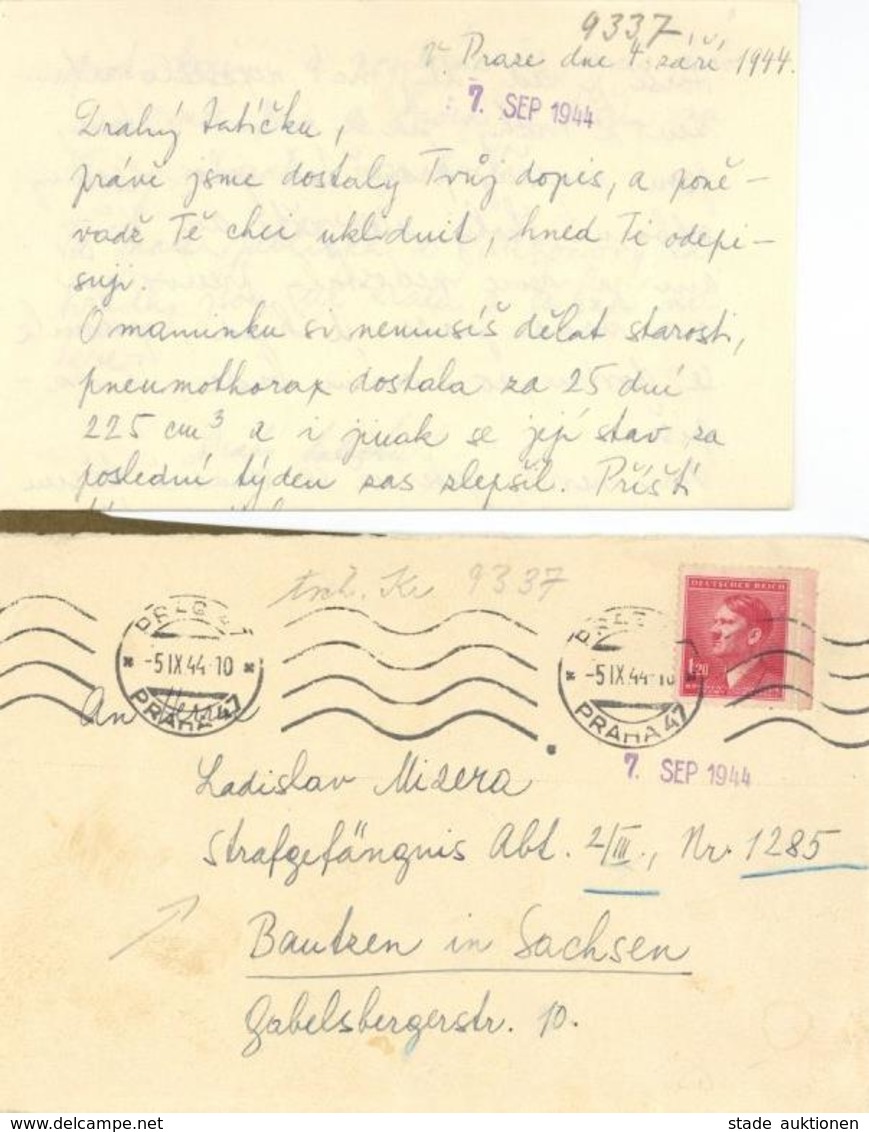 9337
V Praze dne 4. září 1944.
7. SEP 1944
Drahý tatíčku,
právě jsme dostaly Tvůj dopis, a poně-
vadž Tě chci uklidnit, hned Ti odepi-
suji.
O maminku si nemusíš dělat starosti,
pneumothorax dostala za 25 dní
225 cm³ a i jinak se její stav za
poslední týden zas zlepšil. Příští
tsch. Kr 9337
DEUTSCHES REICH
1.20
PRAG 47
-5 IX 44-10
PRAHA 47
PRAG
-5 IX 44-10
PRAHA 47
An Herrn
7. SEP 1944
Ladislav Mizera
Strafgefängnis Abt. 2/III., Nr. 1285
Bautzen in Sachsen
Gabelsbergerstr. 10.
stade auktionen